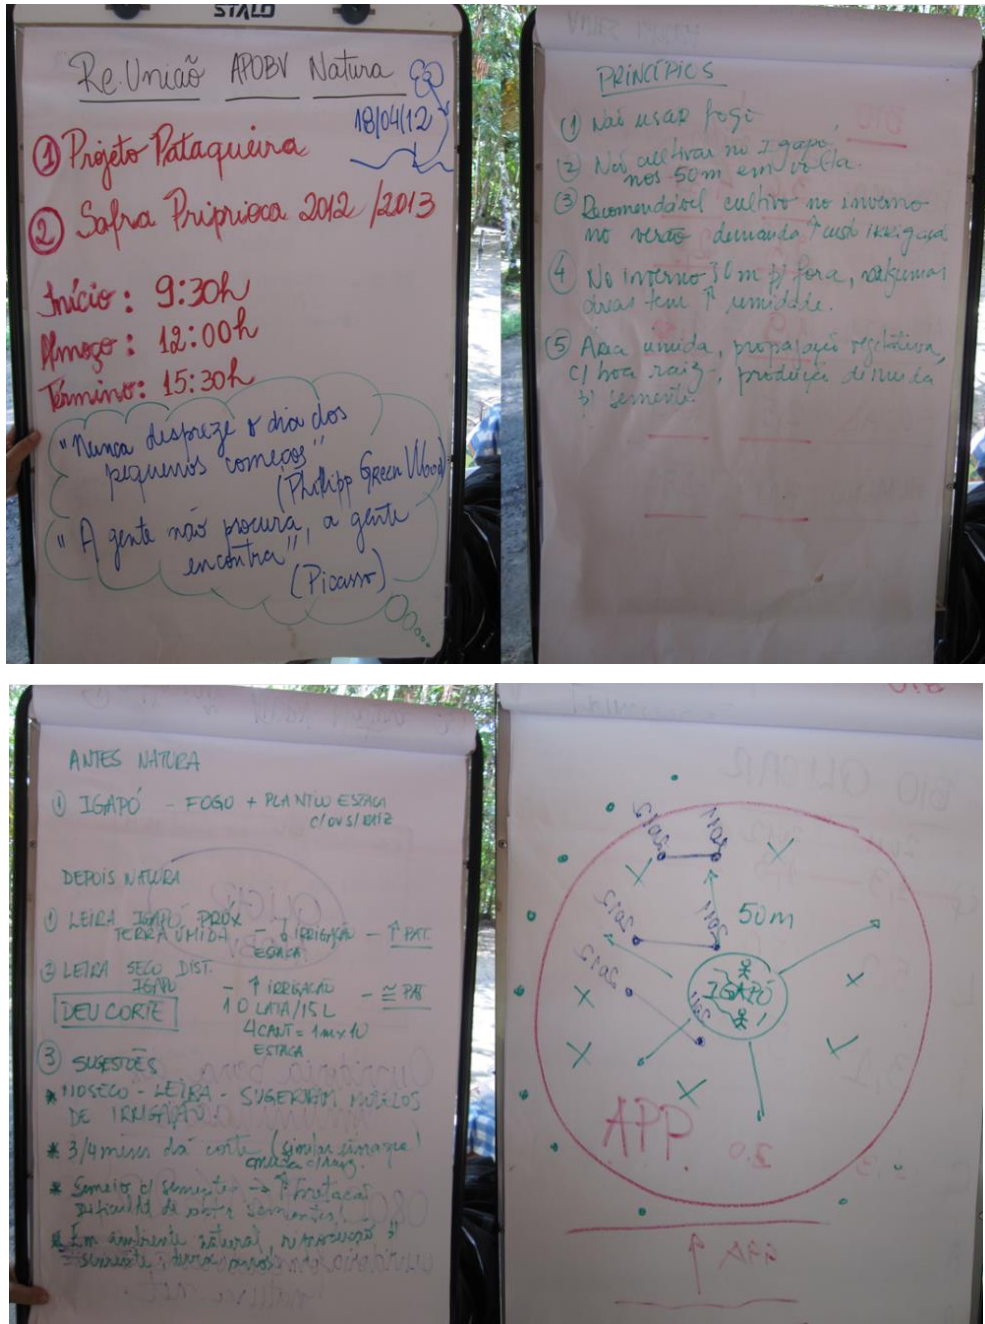 STALO
Re.União APOBV Natura
18/04/12
① Projeto Pataqueira
② Safra Priprioca 2012/2013
Início: 9:30h
Almoço: 12:00h
Término: 15:30h
"Nunca despreze o dia dos
pequenos começos"
(Phillipp Green Wood)
"A gente não procura, a gente
encontra"
(Picasso)
PRINCÍPIOS
① Não usar fogo
② Não cultivar no Igapó,
nos 50m em volta.
③ Recomendável cultivo no inverno
no verão demanda ↑ irrigação
④ No inverno 50m p/ fora, algumas
áreas tem ↑ umidade.
⑤ Área úmida, propagação vegetativa,
c/ boa raiz, produção de muda
p/ semente.
ANTES NATURA
① IGAPÓ - FOGO + PLANTIO ESTACA
C/OU S/RAIZ
DEPOIS NATURA
① LEIRA IGAPÓ PRÓX
TERRA ÚMIDA - IRRIGAÇÃO - ↑ PAT.
ESTACA
② LEIRA SECO DIST.
IGAPÓ - ↑ IRRIGAÇÃO - ≅ PAT
DEU CORTE
10 LATA/15 L
4 CANT = 1m x 10
ESTACA
③ SUGESTÕES
* NO SECO - LEIRA - SUGERIRAM MODELOS
DE IRRIGAÇÃO
* 3/4 meses dá corte (similar
muda c/ raiz.
* Semeio c/ semente →
Dificuld. de sementes
* Em ambiente natural, reprodução p/
semente, terra
2012
2011
2012
2011
2012
50m
IGAPÓ
APP